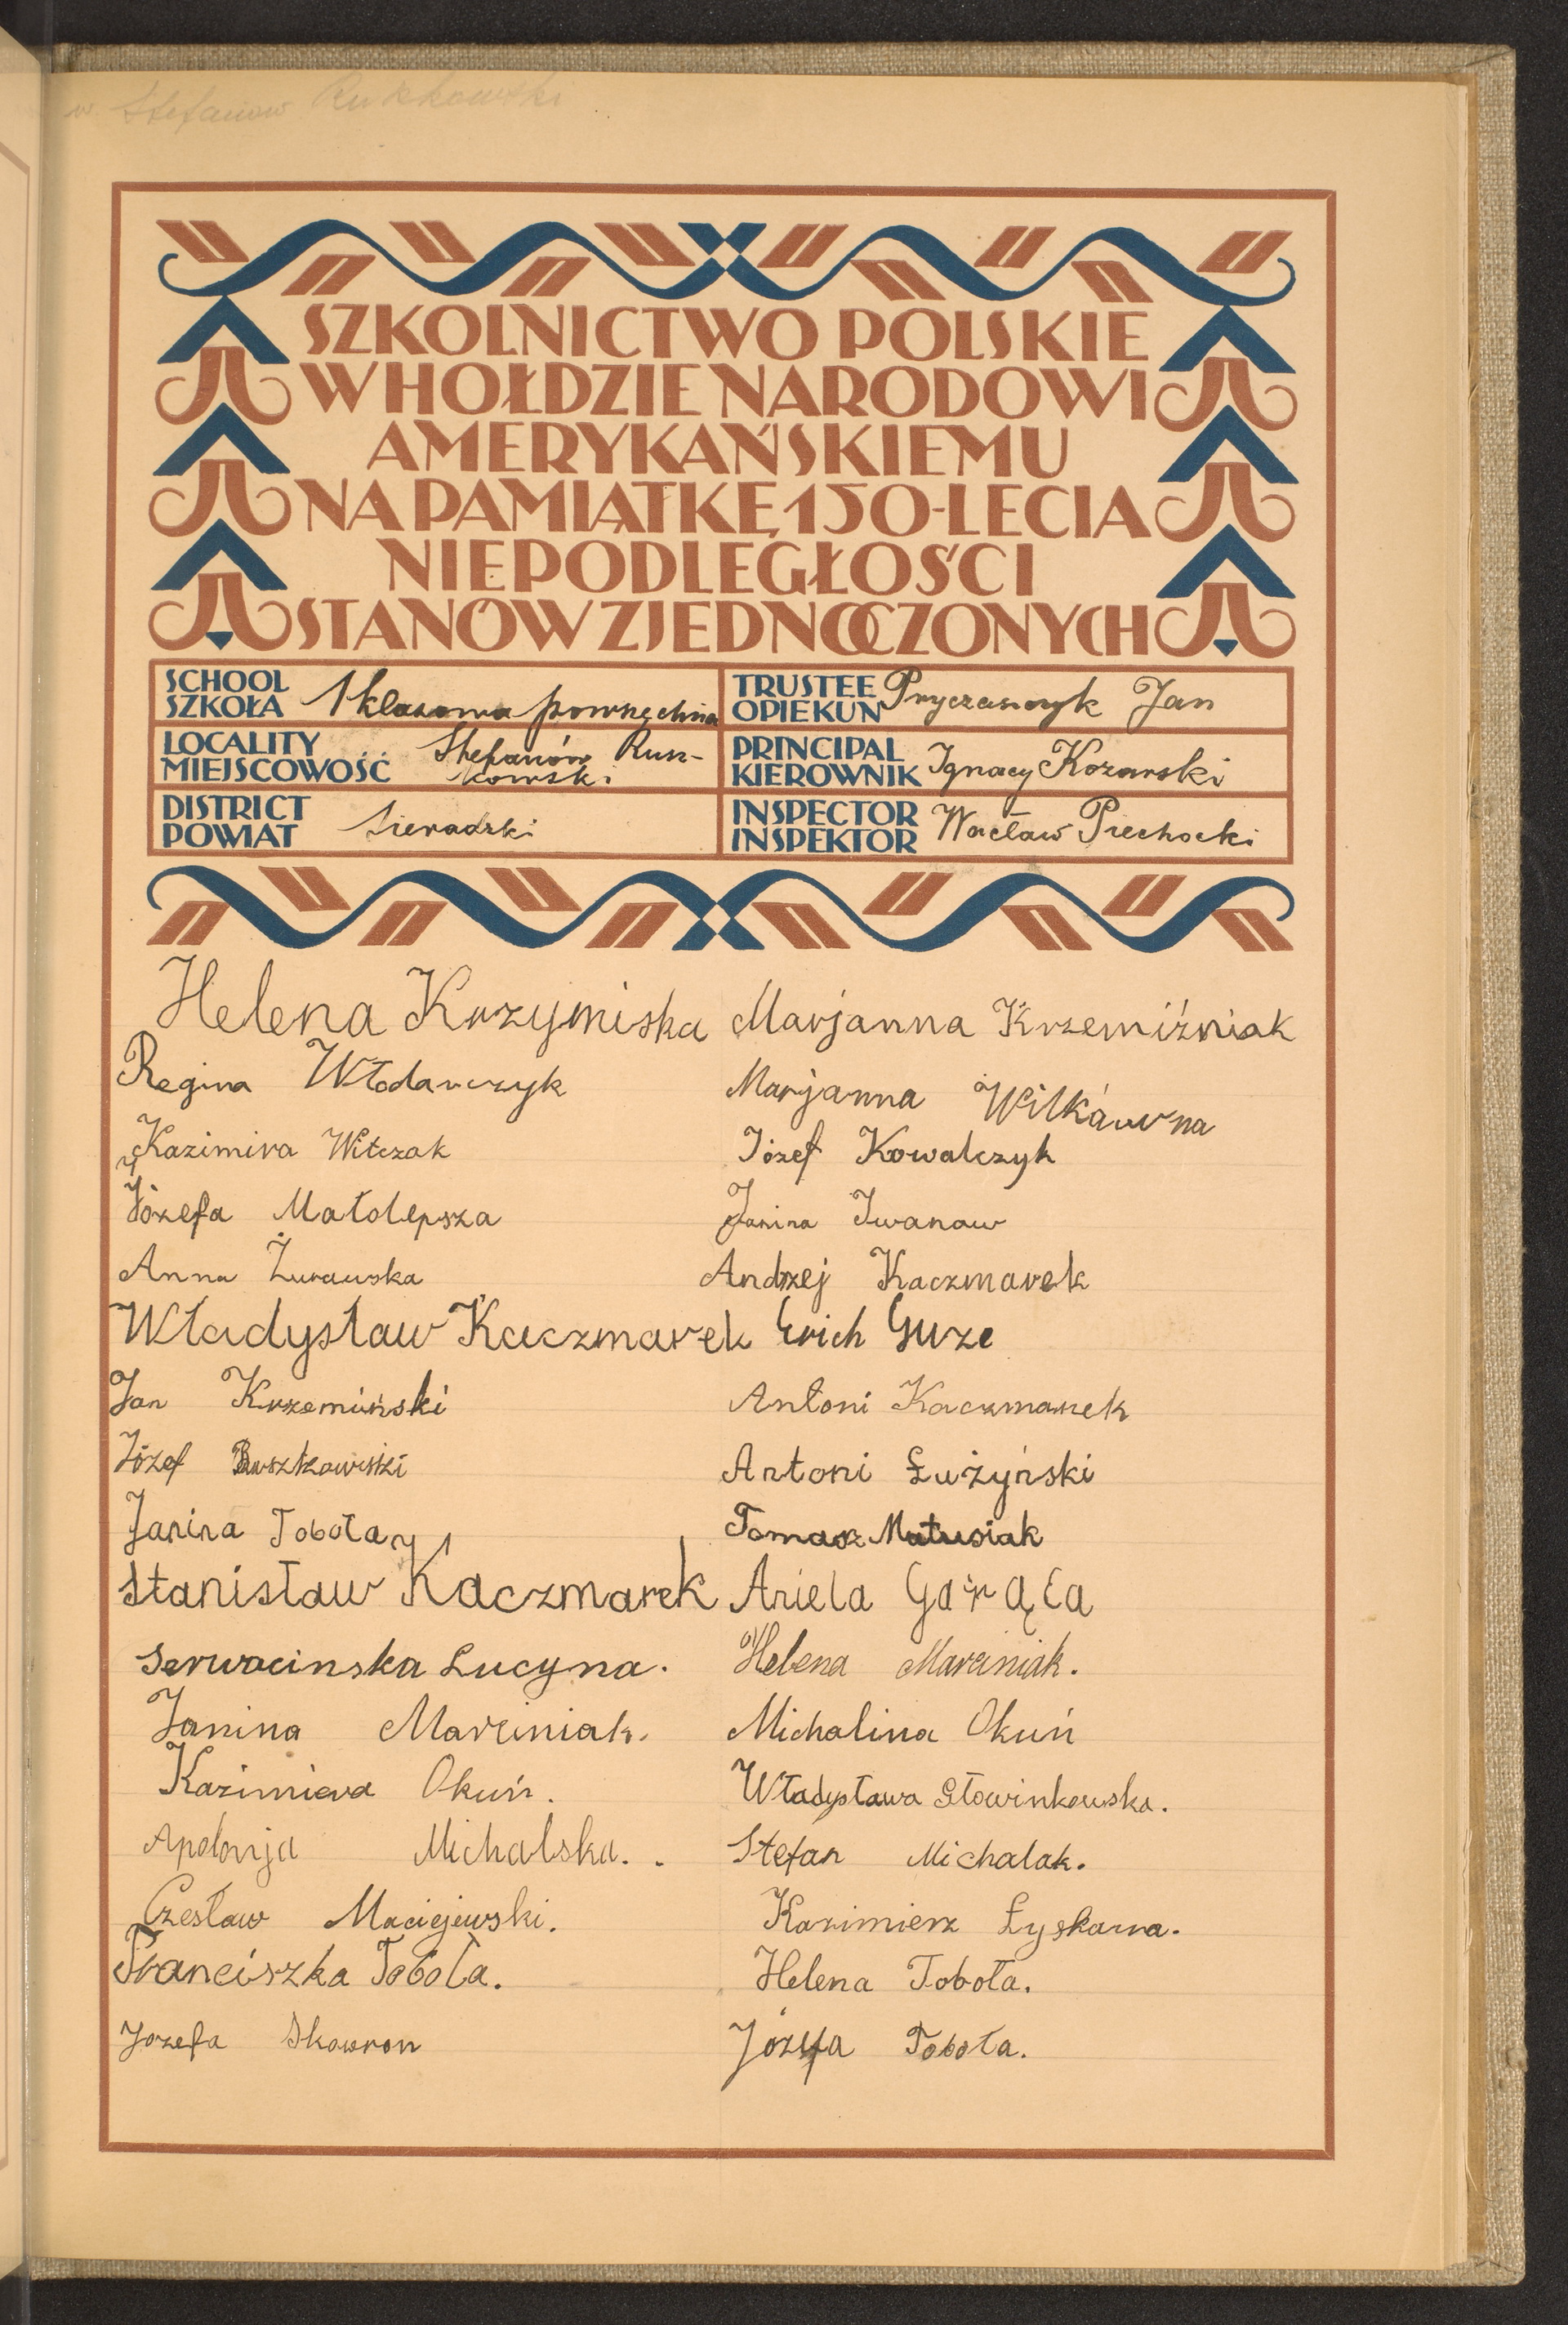 w Stefanow Ruszkowski
SZKOLNICTWO POLSKIE
W HOŁDZIE NARODOWI
AMERYKAŃSKIEMU
NA PAMIĄTKĘ 150-LECIA
NIEPODLEGŁOŚCI
STANÓW ZJEDNOCZONYCH
SCHOOL
SZKOŁA 1 klasowa powszechna
TRUSTEE
OPIEKUN Jan
LOCALITY
MIEJSCOWOŚĆ Stefanów Rusz-
kowski
PRINCIPAL
KIEROWNIK Ignacy Kozarski
DISTRICT
POWIAT Sieradzki
INSPECTOR
INSPEKTOR Wacław Piechocki
Helena Krzymiska Marjanna Krzemiźniak
Regina Włodarczyk Marjanna Wilkówna
Kazimira Witczak Józef Kowalczyk
Józefa Małolepsza Janina Iwanaw
Anna Żurawska Andrzej Kaczmarek
Władysław Kaczmarek Erich Guze
Jan Krzemiński Antoni Kaczmarek
Józef Antoni Łużyński
Janina Toboła Tomasz Matusiak
Stanisław Kaczmarek Aniela
Serwacinska Lucyna. Helena Marciniak.
Janina Marciniak. Michalina Okuń
Kazimiera Okuń. Władysława Słowinkowska.
Apolonja Michalska. Stefan Michalak.
Czesław Maciejewski. Kazimierz Łyskawa.
Franciszka Tobola. Helena Toboła.
Jozefa Skowron Józefa Toboła.